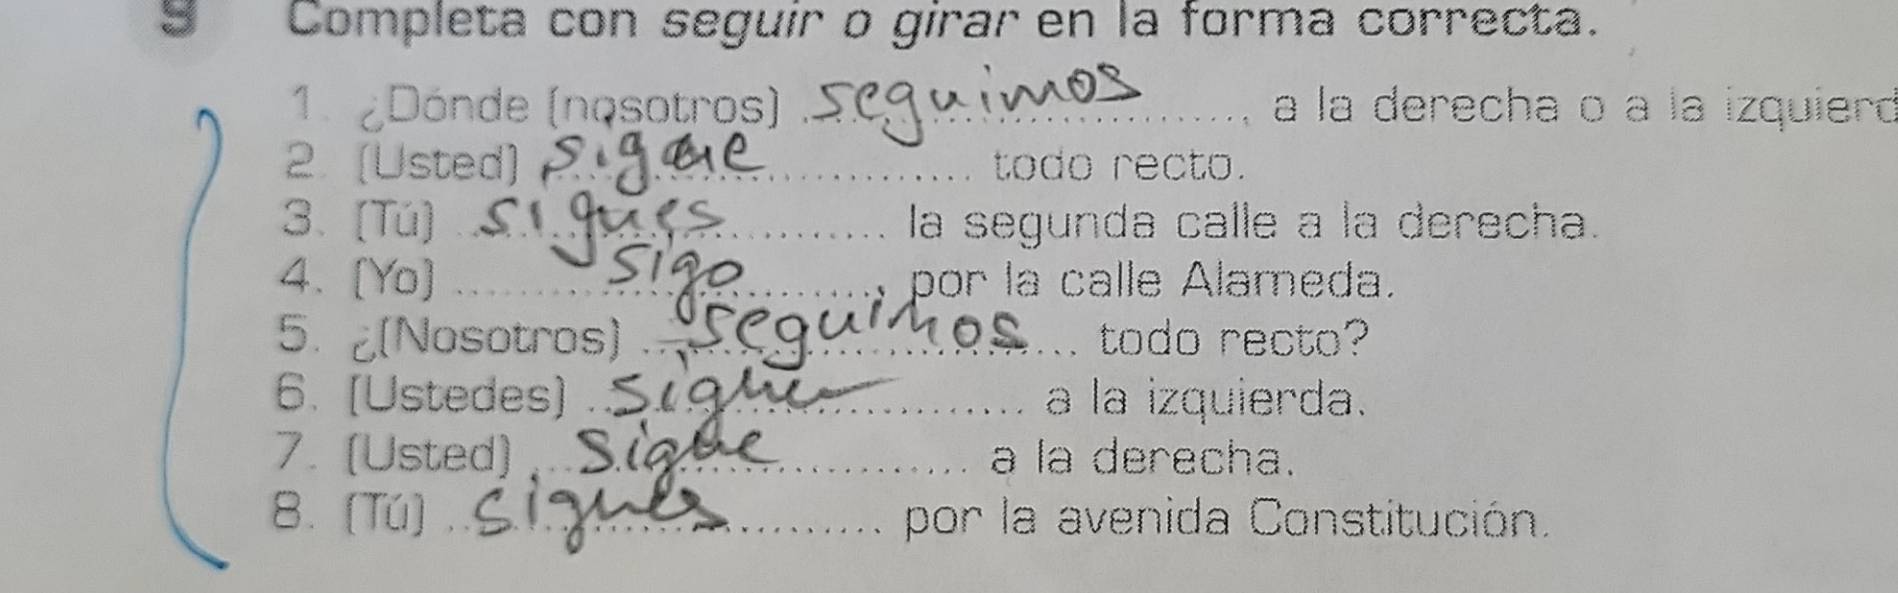 9 Completa con seguir o girar en la forma correcta.
1. ¿Dónde (nosotros) seguimos, a la derecha o a la izquierd
2. (Usted) sigue todo recto.
3. (Tú) sigues la segunda calle a la derecha.
4. (Yo) sigo por la calle Alameda.
5. ¿(Nosotros) seguimos todo recto?
6. (Ustedes) siguen a la izquierda.
7. (Usted) sigue a la derecha.
8. (Tú) sigues por la avenida Constitución.